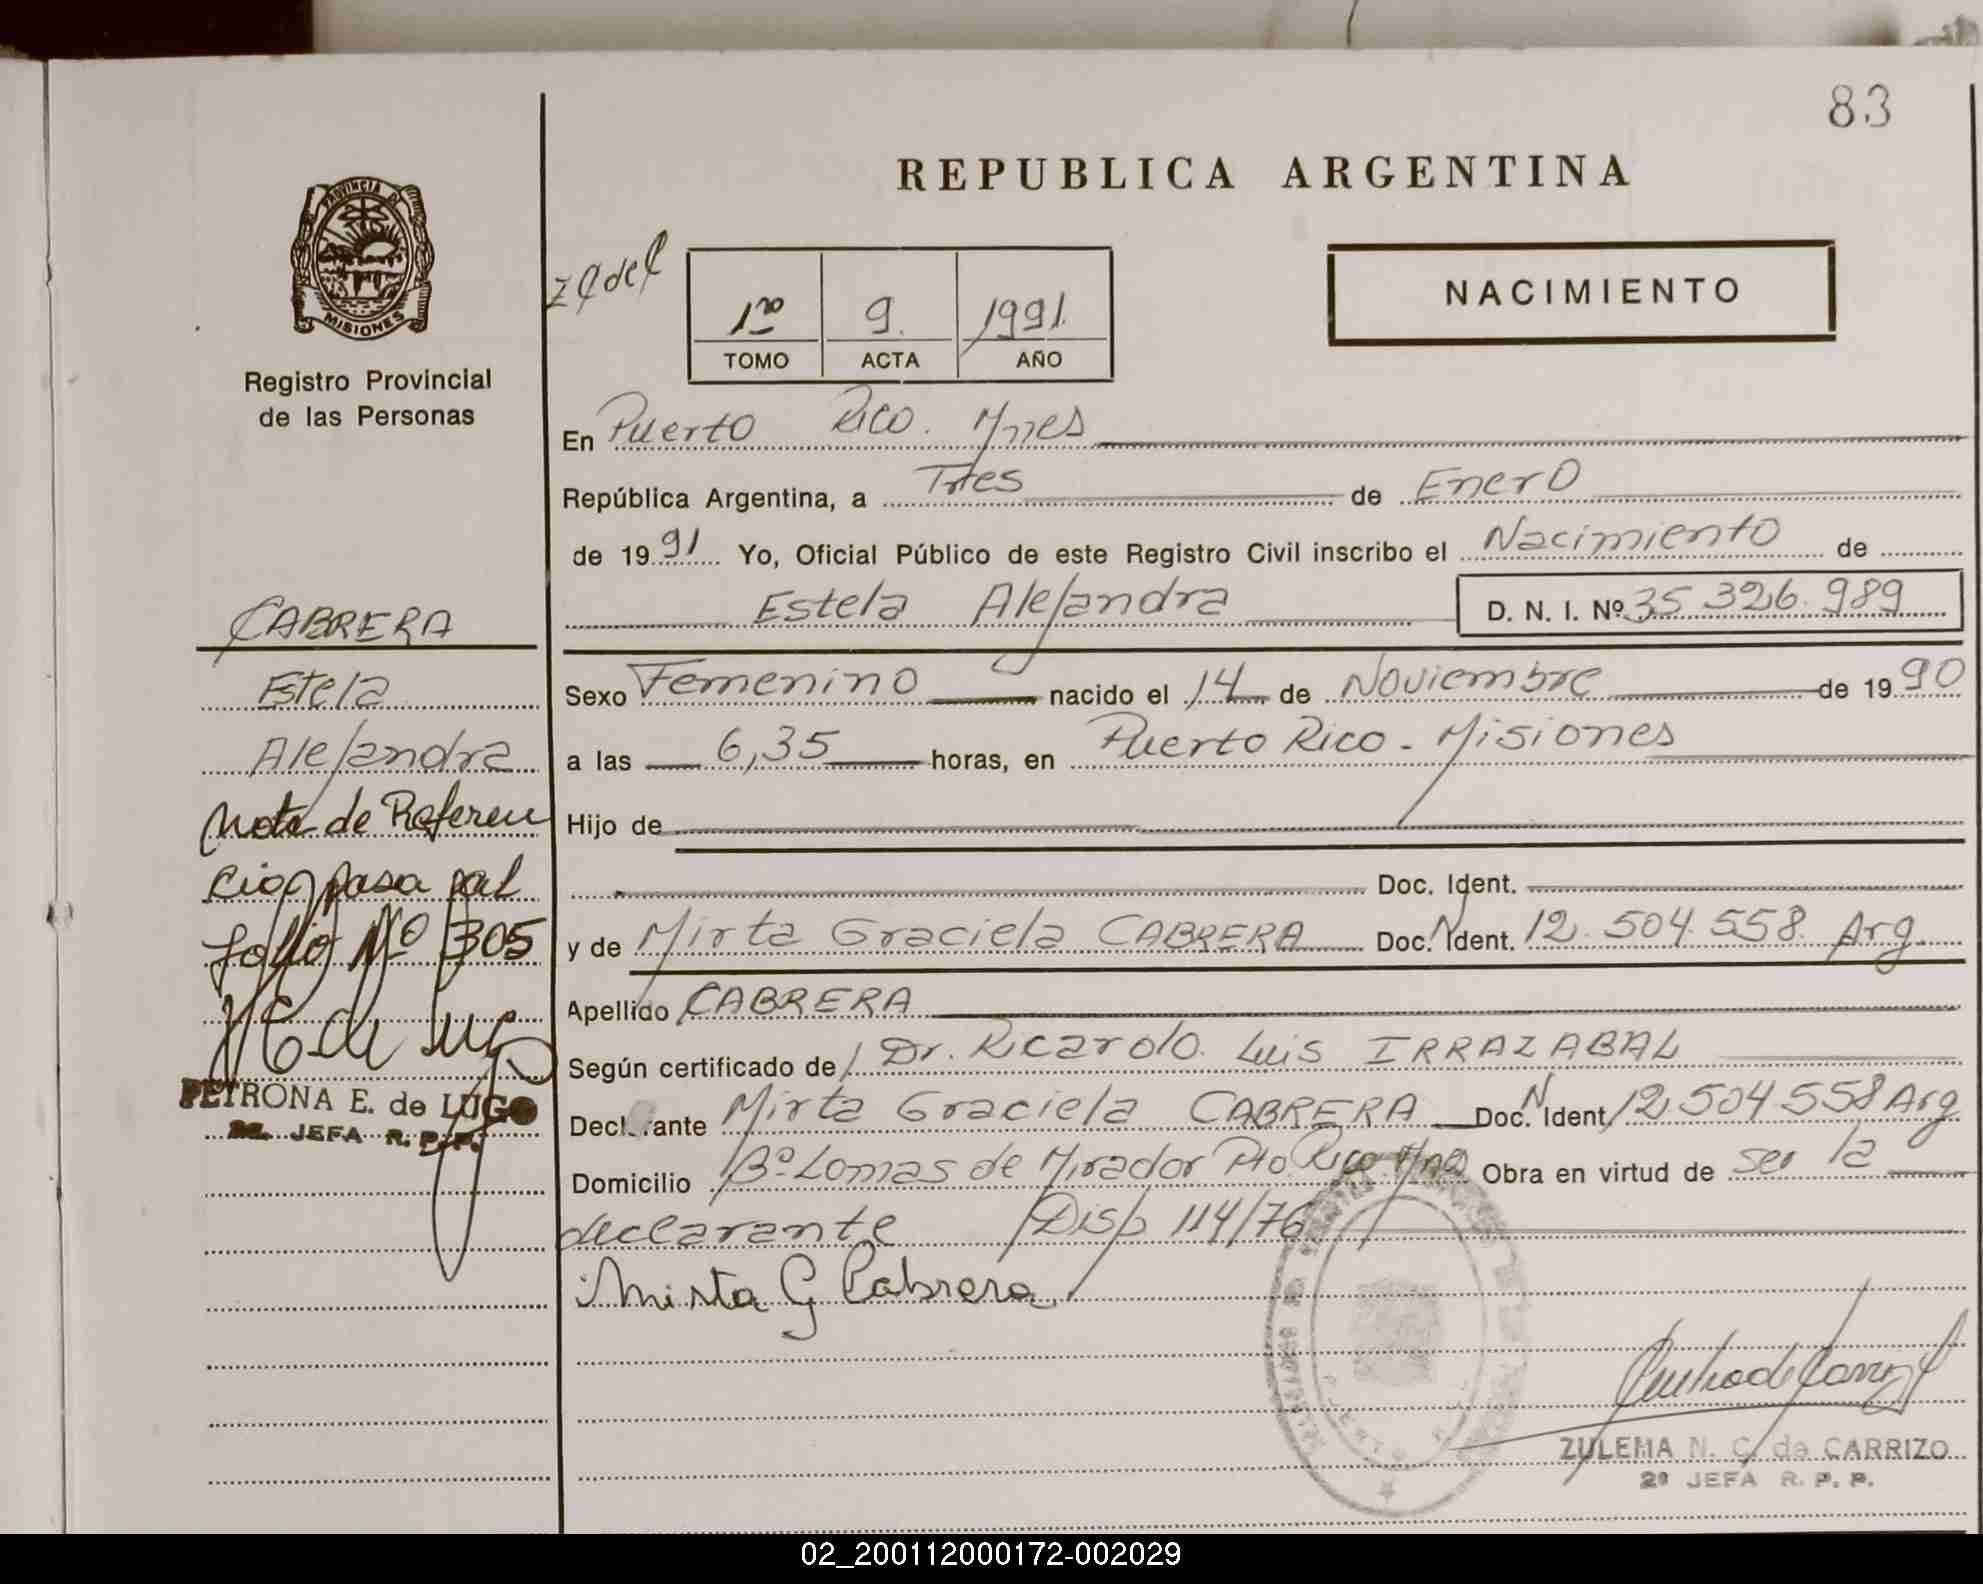 83
REPUBLICA ARGENTINA
PROVINCIA DE
MISIONES
Registro Provincial
de las Personas
1ro 9. 1991.
TOMO ACTA AÑO
NACIMIENTO
En Puerto Rico. Mnes
República Argentina, a Tres de Enero
de 1991 Yo, Oficial Público de este Registro Civil inscribo el Nacimiento de
Estela Alejandra D. N. I. Nº 35.326.989
CABRERA
Estela
Alejandra
Nota de Referen
cia pasa al
folio Nº 305
PETRONA E. de LUGO
JEFA R. P. P.
Sexo Femenino nacido el 14 de Noviembre de 1990
a las 6,35 horas, en Puerto Rico - Misiones
Hijo de
Doc. Ident.
y de Mirta Graciela CABRERA Doc. N Ident. 12.504.558 Arg.
Apellido CABRERA
Según certificado de Dr. Ricardo Luis IRRAZABAL
Declarante Mirta Graciela CABRERA Doc. N Ident. 12.504.558 Arg
Domicilio Bº Lomas de Mirador Pto Rico Mnes Obra en virtud de ser la
declarante Disp 114/76
Mirta G Cabrera
ZULEMA N. C. de CARRIZO
2º JEFA R. P. P.
02_200112000172-002029